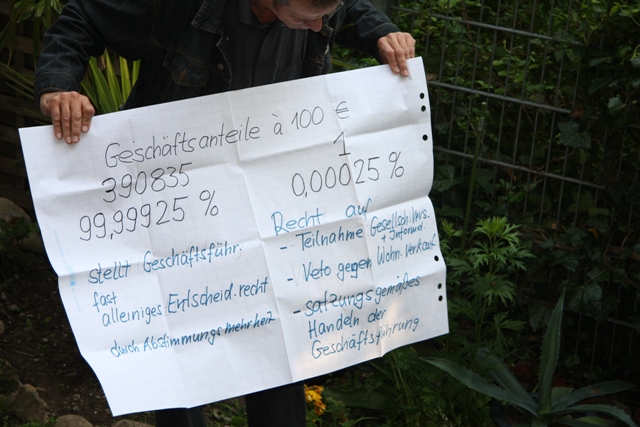 Geschäftsanteile à 100 €
390835
99,99925 %
stellt Geschäftsführ.
fast
alleiniges Entscheid.recht
durch Abstimmungsmehrheit
1
0,00025 %
Recht auf
- Teilnahme Gesellsch.Vers.
+ Informat.
- Veto gegen Wohn. Verkauf
- satzungsgemäßes
Handeln der
Geschäftsführung